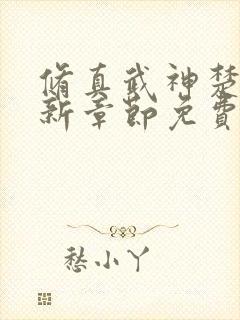 脩真武神楚
新章節免費
愁小丫